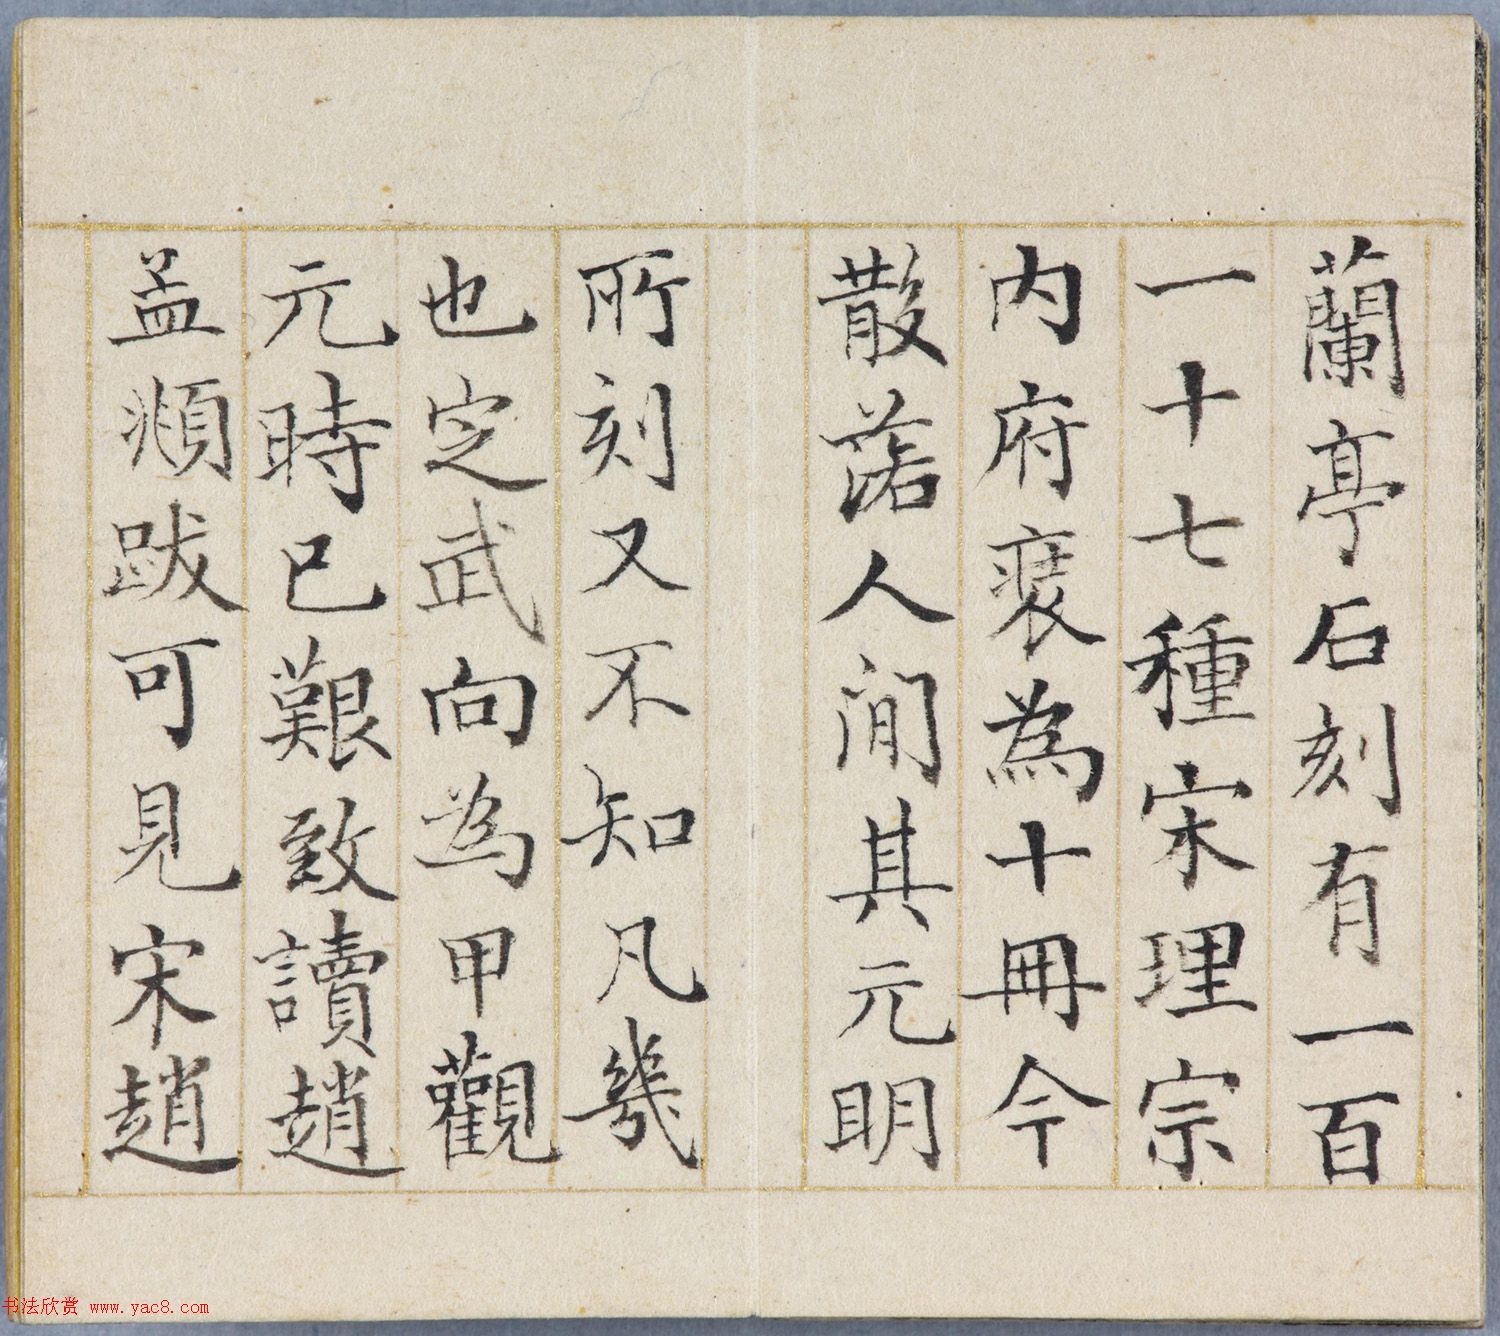 蘭亭石刻有一百
一十七種宋理宗
内府裒為十冊今
散落人間其元明
所刻又不知凡幾
也定武向為甲觀
元時已艱致讀趙
孟頫跋可見宋趙
书法欣赏 www.yac8.com